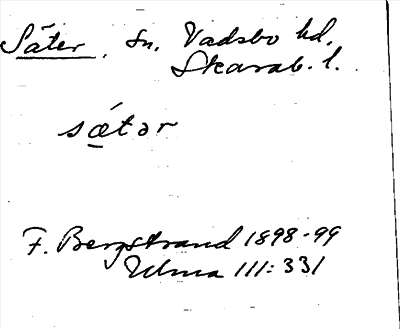 Säter, sn. Vadsbo hd.
Skarab. l.
sǽtər
F. Bergstrand 1898-99
Ulma 111:331